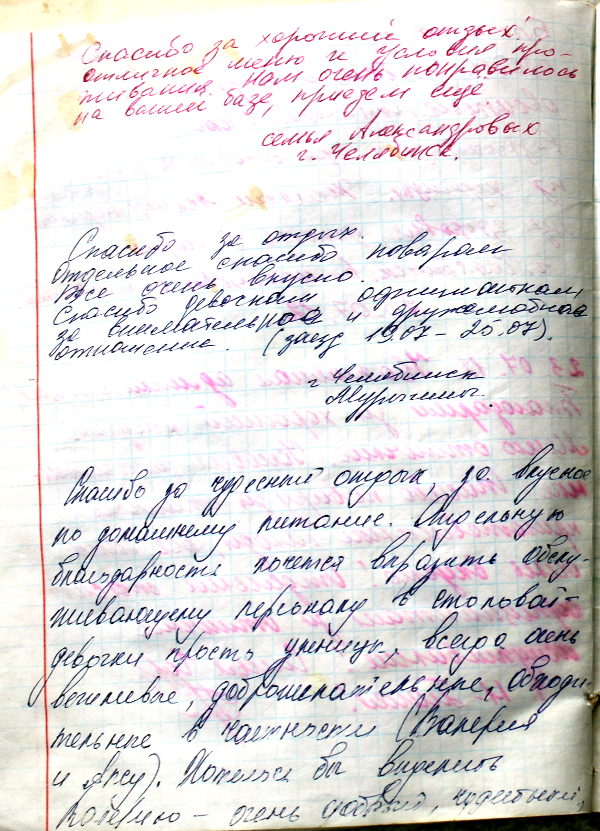 Спасибо за хороший отдых!
отличное меню и условия про-
живания. Нам очень понравилось
на вашей базе, приедем ещё.
семья Александровых
г. Челябинск.
Спасибо за отдых.
Отдельное спасибо поварам
Все очень вкусно.
Спасибо девочкам
за внимательное и дружелюбное
отношение. (заезд 19.07 – 25.07).
г. Челябинск
Спасибо за чудесный отдых, за вкусное
по домашнему питание. Отдельную
благодарность хочется выразить обслу-
живающему персоналу в столовой -
девочки просто умницы, всегда очень
вежливые, доброжелательные, обходи-
тельные в частности (Валерия
и). Хотелось бы выделить
Валерию – очень чудесный,